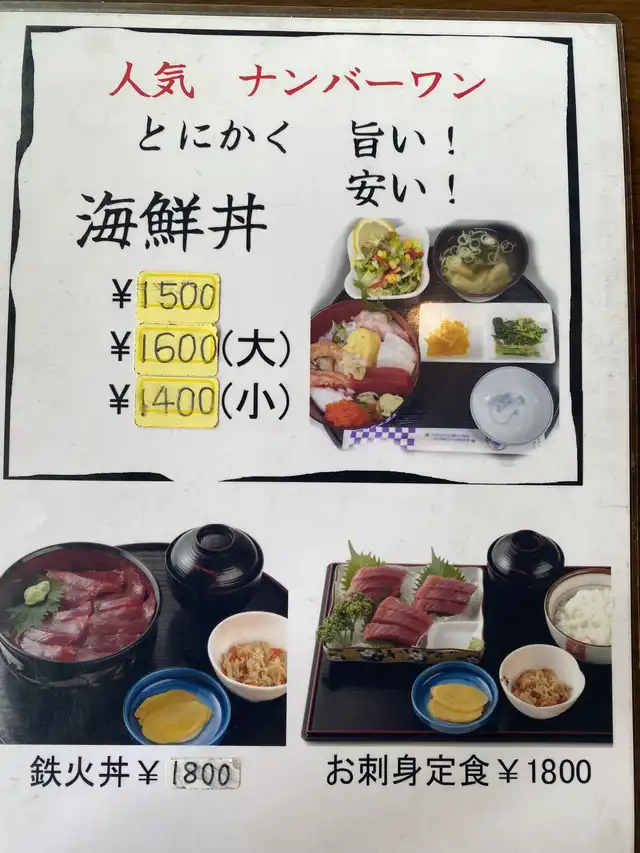 人気　ナンバーワン
とにかく　旨い！
安い！
海鮮丼
¥1500
¥1600(大)
¥1400(小)
鉄火丼¥1800
お刺身定食¥1800